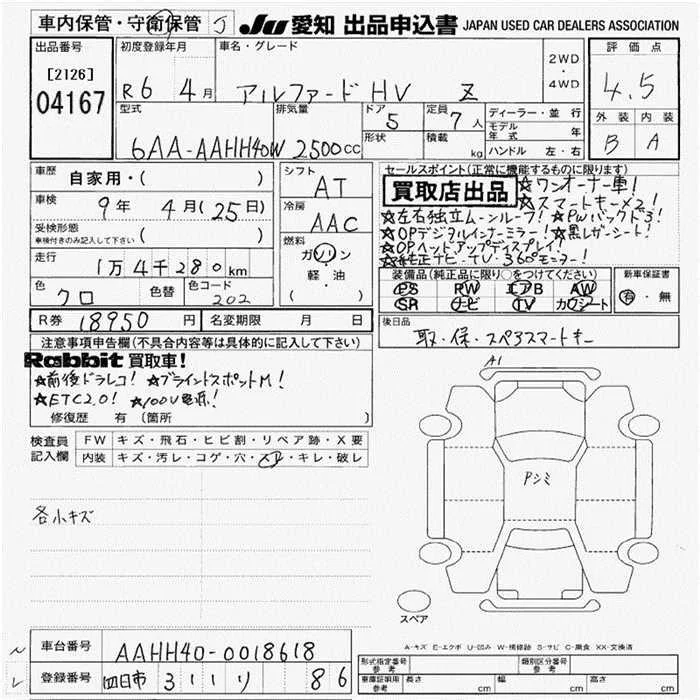 車内保管・守衛保管 J JU 愛知 出品申込書 JAPAN USED CAR DEALERS ASSOCIATION
出品番号 初度登録年月 車名・グレード 評価点
[2126] 2WD・4WD
04167 R6 4月 アルファード HV Z 4.5
型式 排気量 ドア 定員 ディーラー・並行 外装 内装
5 7人 モデル年式 年
6AA-AAHH40W 2500cc 形状 積載 kg ハンドル 左・右 B A
車歴 自家用・( ) シフト AT セールスポイント(正常に機能するものに限ります)
買取店出品 ☆ワンオーナー車!
車検 9年 4月(25日) 冷房 AAC ☆スマートキー×2!
☆左右独立ムーンルーフ! ☆PWバックドア!
受検形態 車検付きのみ記入して下さい ( ) 燃料 ガソリン ☆OPデジタルインナーミラー! ☆黒レザーシート!
☆OPヘッドアップディスプレイ!
走行 1万4千280km 軽・油 ☆純正ナビ・TV・360°モニター!
( ) 装備品(純正品に限り○をつけてください) 新車保証書
色 クロ 色替 色コード 202 PS PW エアB AW 有・無
SR ナビ TV カワシート
R券 18950円 名変期限 月 日 後日品
取・保・スペアスマートキー
注意事項申告欄(不具合内容等は具体的に記入して下さい)
Rabbit 買取車! A1
☆前後ドラレコ! ☆ブラインドスポットM!
☆ETC2.0! ☆100V電源!
修復歴 有 (箇所 )
検査員記入欄 FW キズ・飛石・ヒビ割・リペア跡・X要
内装 キズ・汚レ・コゲ・穴・スレ・キレ・破レ
Pシミ
各小キズ
スペア
A-キズ E-エクボ U-凹み W-補修跡 S-サビ C-腐食 XX-交換済
車台番号 AAHH40-0018618
型式指定番号 参考 類別区分番号 参考
登録番号 四日市 311 り 86
車庫証明用 参考 長さ cm 幅 cm 高さ cm